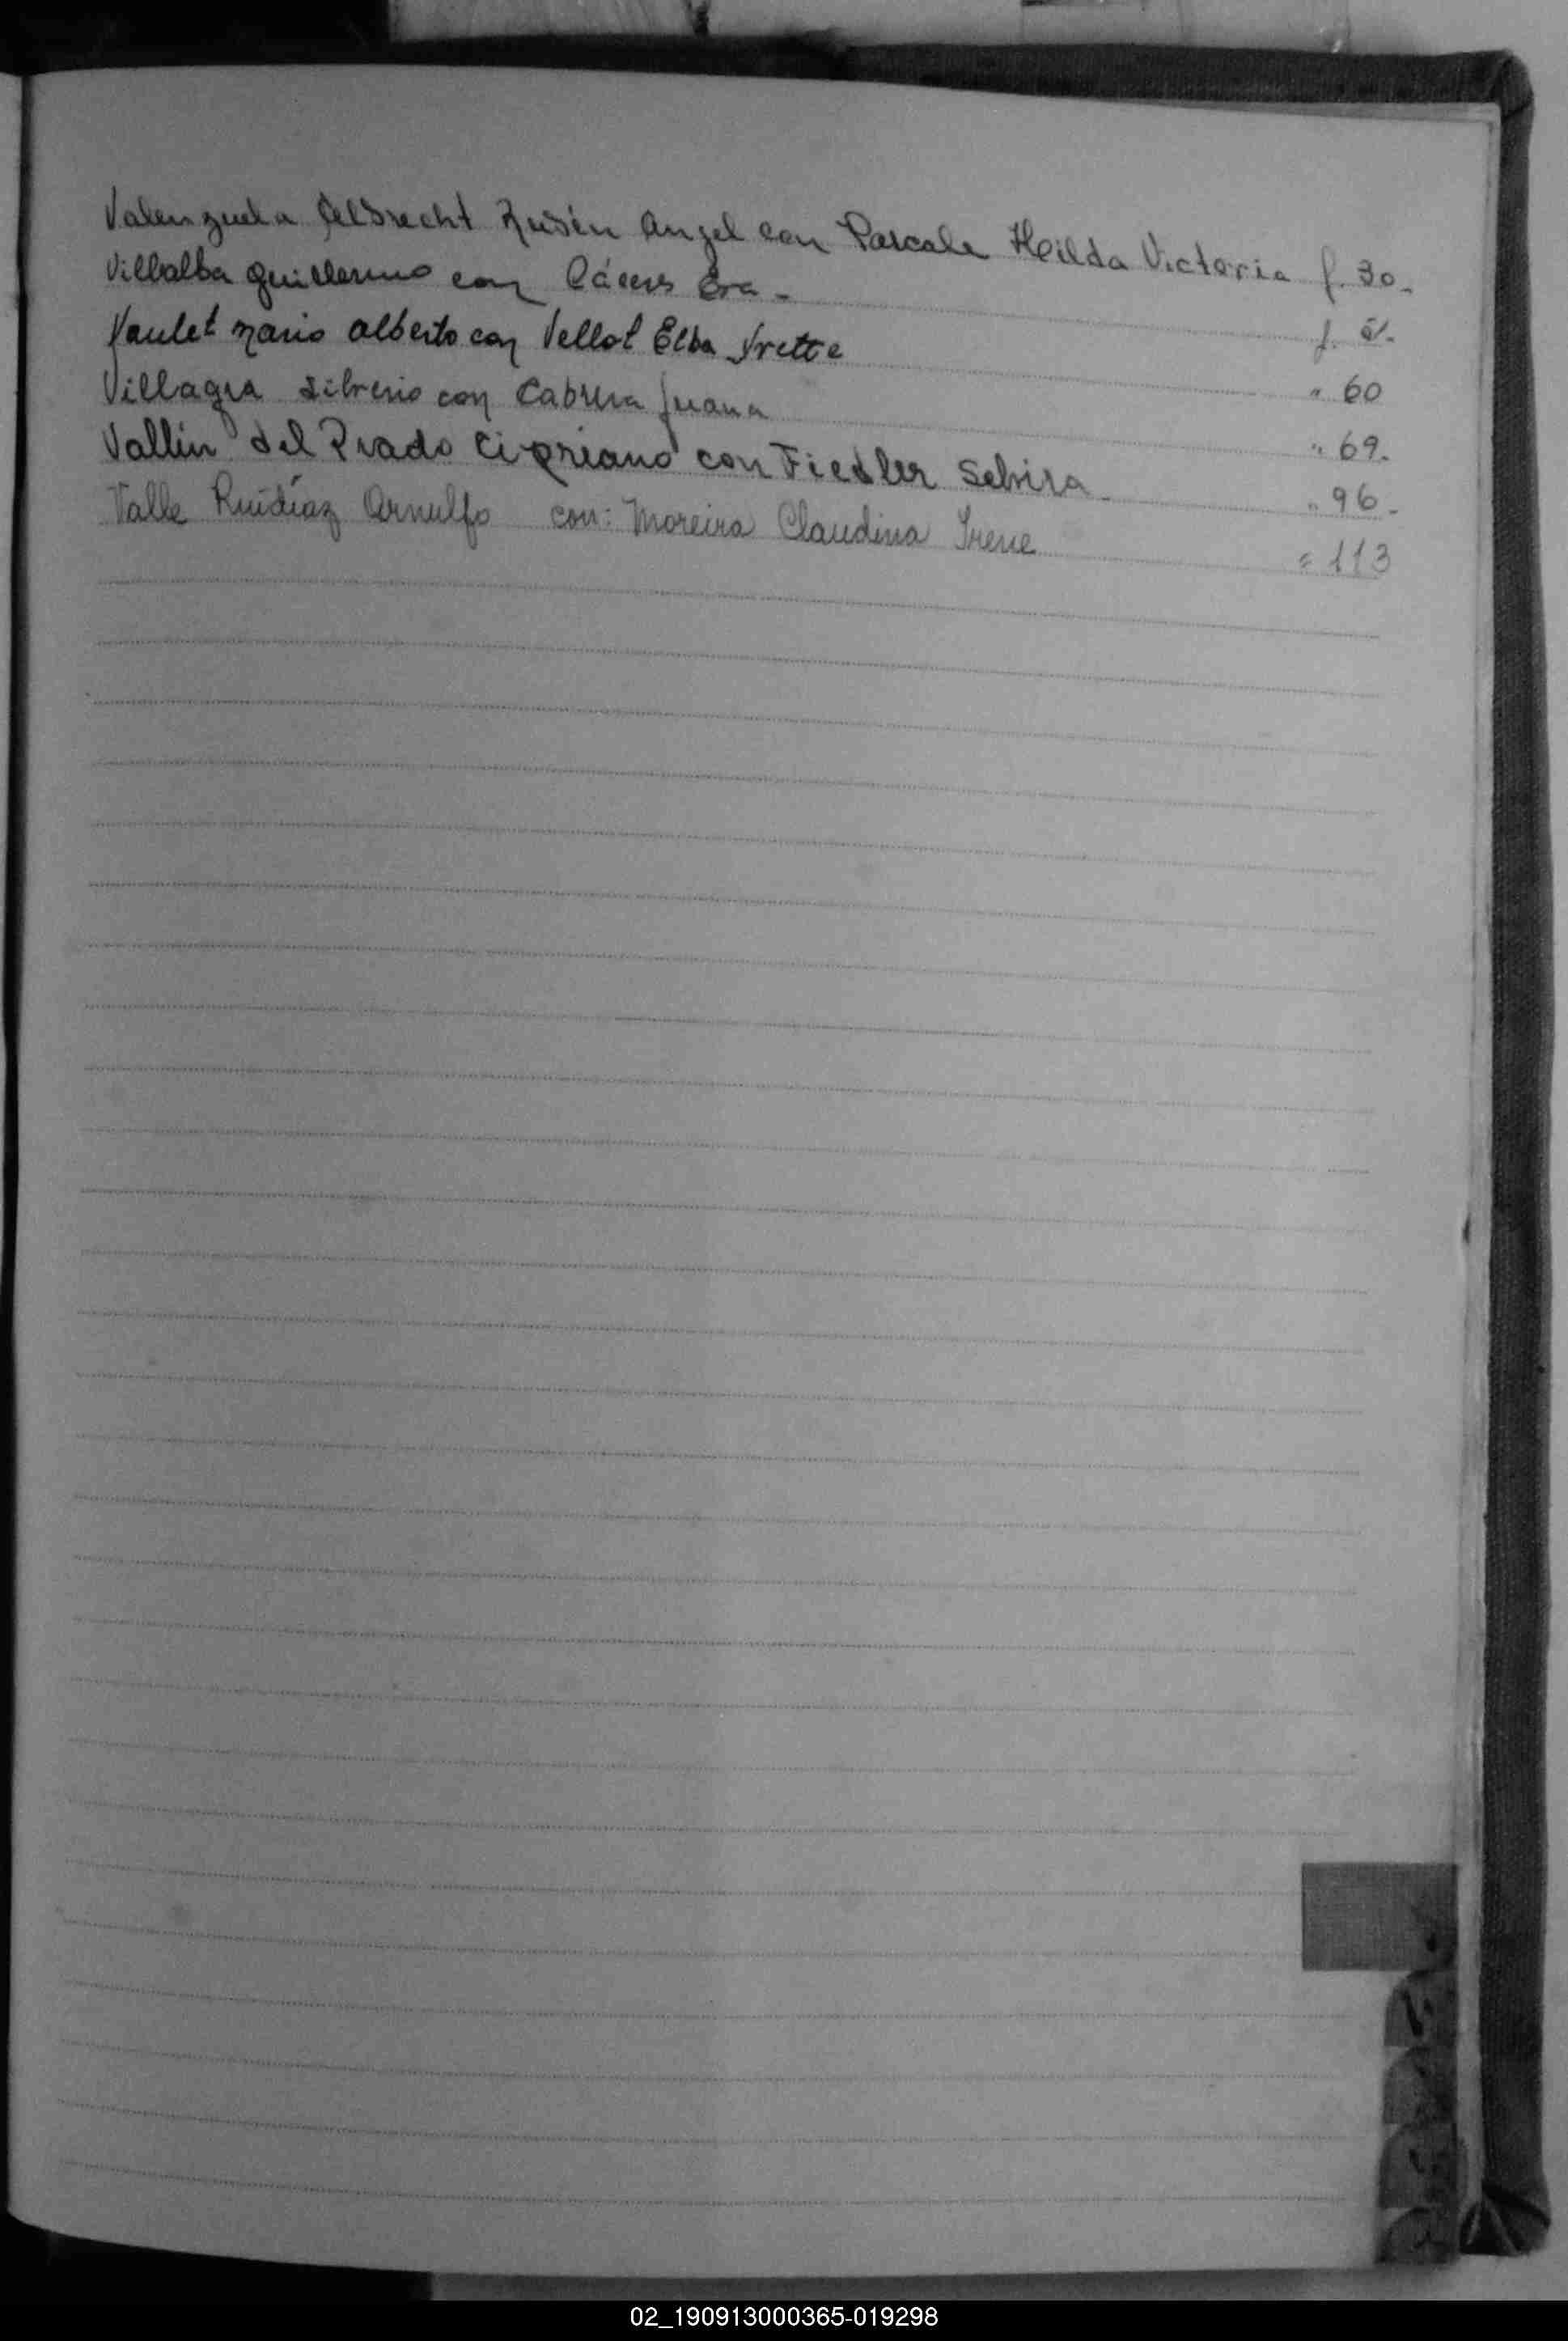 Valenzuela Albrecht Rubén Angel con Pascale Hilda Victoria f. 30.
Villalba Guillermo con Cáceres Eva - f.
Vaulet Mario Alberto con Vellot Elba Ivette " 60
Villagra Silverio con Cabrera Juana " 69.
Vallin del Prado Cipriano con Fiedler Selvira " 96.
Valle Ruidíaz Arnulfo con: Moreira Claudina Irene " 113
02_190913000365-019298